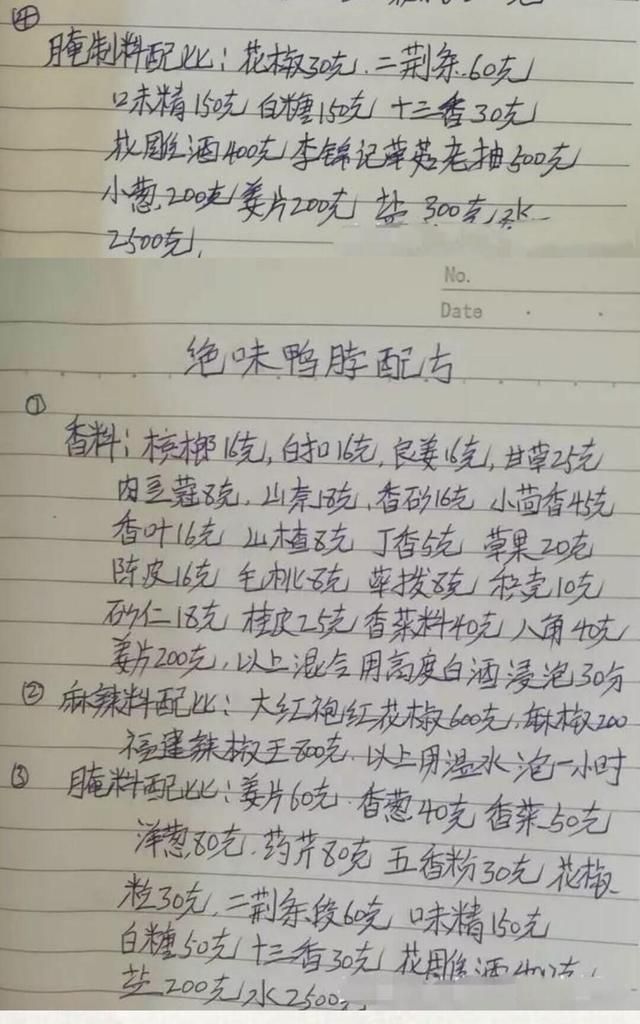 ④
腌制料配比：花椒30克、二荆条60克
口味精150克 白糖150克 十三香30克
花雕酒400克 李锦记草菇老抽500克
小葱200克 姜片200克 盐300克 水
2500克，
No.
Date
绝味鸭脖配方
①
香料：槟榔16克，白扣16克，良姜16克，甘草25克
肉豆蔻8克，山奈18克，香砂16克 小茴香45克
香叶16克 山楂8克 丁香5克 草果20克
陈皮16克 毛桃8克 荜拨8克 枳壳10克
砂仁18克 桂皮25克 香菜料40克 八角40克
姜片200克，以上混合用高度白酒浸泡30分
② 麻辣料配比：大红袍红花椒600克，麻椒200
福建辣椒王800克，以上用温水泡一小时
③ 腌料配比：姜片60克 香葱40克 香菜50克
洋葱80克、药芹80克 五香粉30克 花椒
粒30克，二荆条段60克 口味精150克
白糖50克 十三香30克 花雕酒400克，
盐200克 水2500